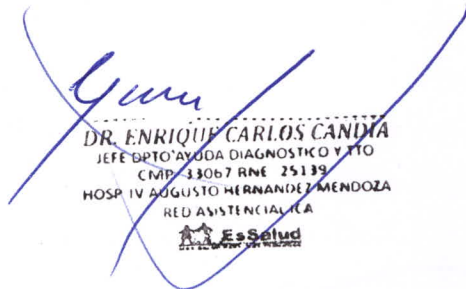 DR. ENRIQUE CARLOS CANDIA
JEFE DPTO AYUDA DIAGNOSTICO Y TTO
CMP 33067 RNE 25139
HOSP IV AUGUSTO HERNANDEZ MENDOZA
RED ASISTENCIAL ICA
EsSalud